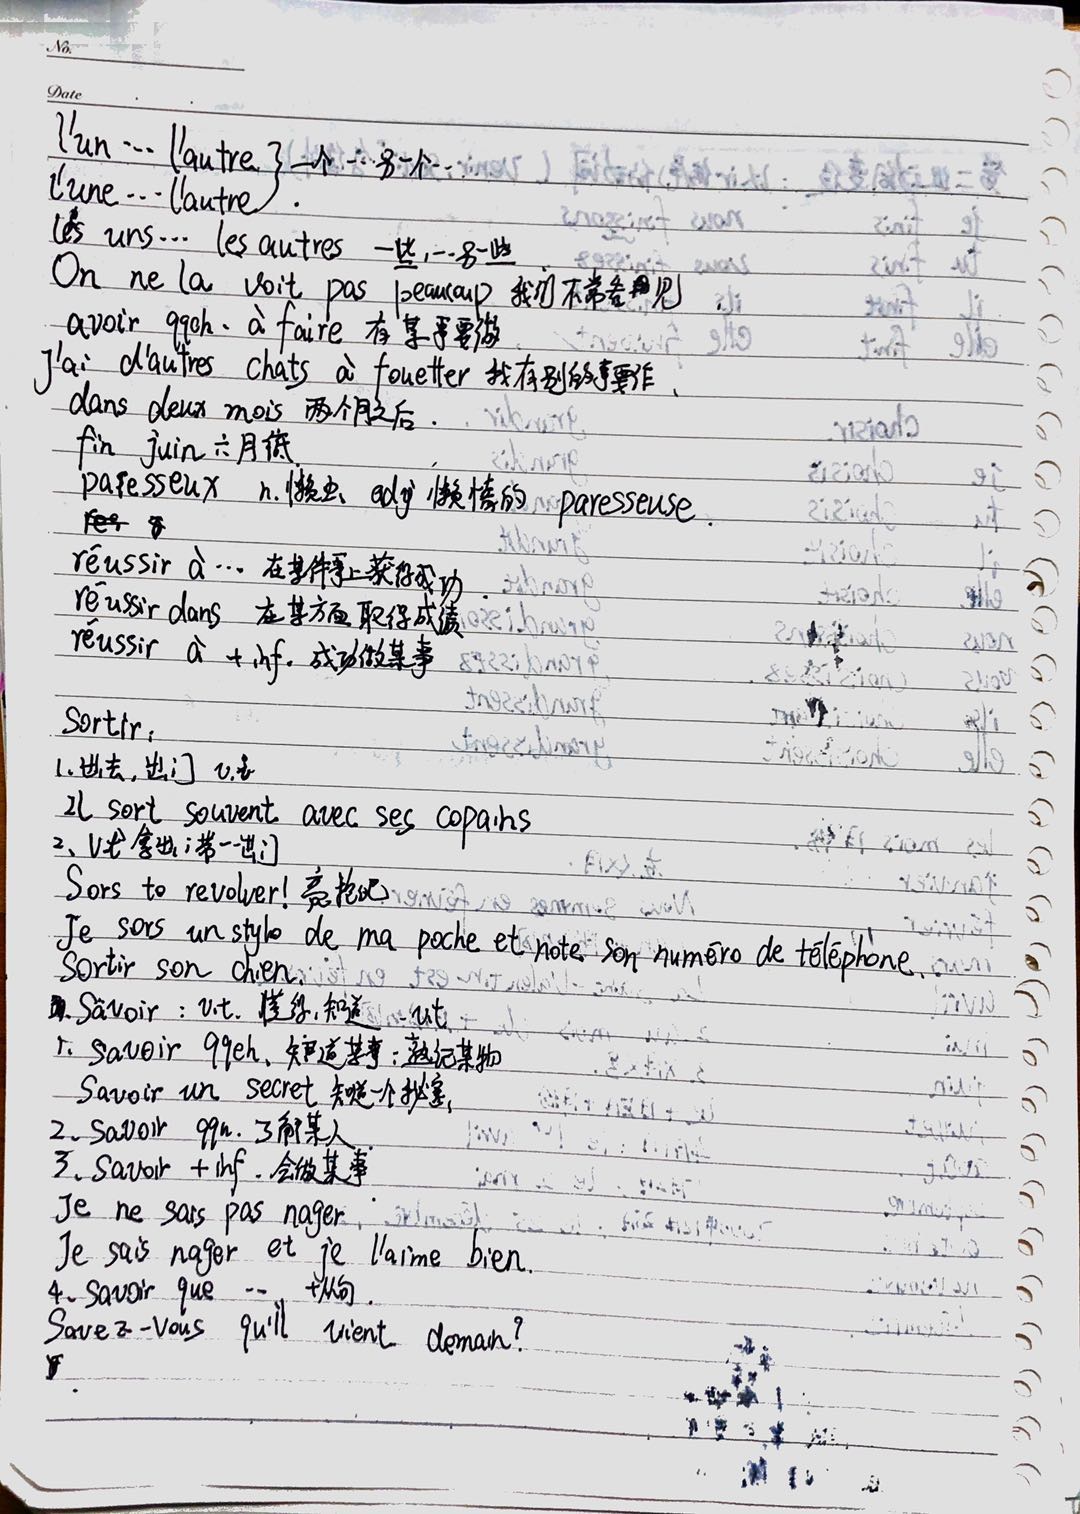 No.
Date
l'un ... l'autre } 一个...另一个...
l'une ... l'autre
les uns... les autres 一些...另一些
On ne la voit pas beaucoup 我们不常看见
avoir qqch. à faire 有某事要做
J'ai d'autres chats à fouetter 我有别的事要作.
dans deux mois 两个月之后.
fin juin 六月底
paresseux n.懒虫、adj 懒惰的 paresseuse.
réussir à... 在某件事上获得成功.
réussir dans 在某方面取得成绩
réussir à +inf. 成功做某事
Sortir:
1.出去,出门 v.i
Il sort souvent avec ses copains
2、v.t 拿出;带一出门
Sors to revolver! 亮抢吧
Je sors un stylo de ma poche et note son numéro de téléphone.
Sortir son chien.
Savoir : v.t. 懂得,知道 v.t
1. savoir qqch、知道某事;熟记某物
Savoir un secret 知道一个秘密,
2、savoir qqn. 了解某人
3、Savoir +inf. 会做某事
Je ne sais pas nager
Je sais nager et je l'aime bien.
4、savoir que ... +从句.
Savez-vous qu'il vient demain?